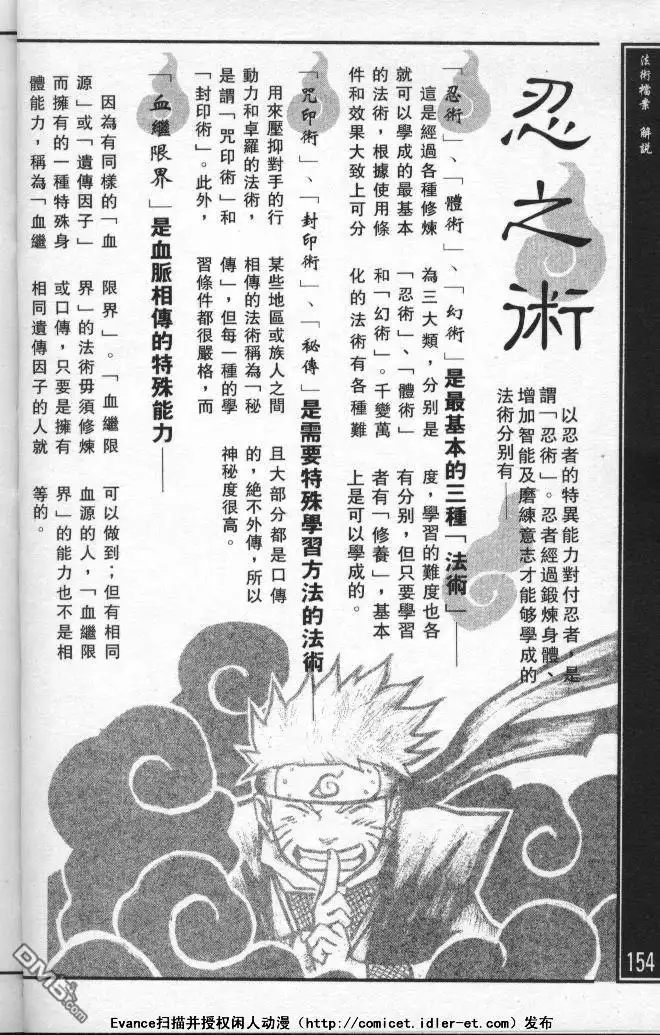 法術檔案 解説
忍之術
以忍者的特異能力對付忍者，是
謂「忍術」。忍者經過鍛煉身體、
增加智能及磨練意志才能够學成的
法術分別有——
「忍術」、「體術」、「幻術」是最基本的三種「法術」——
這是經過各種修煉
就可以學成的最基本
的法術，根據使用條
件和效果大致上可分
為三大類，分別是
「忍術」、「體術」
和「幻術」。千變萬
化的法術有各種難
度，學習的難度也各
有分別，但只要學習
者有「修養」，基本
上是可以學成的。
「咒印術」、「封印術」、「秘傳」是需要特殊學習方法的法術——
用來壓抑對手的行
動力和卓羅的法術，
是謂「咒印術」和
「封印術」。此外，
某些地區或族人之間
相傳的法術稱為「秘
傳」，但每一種的學
習條件都很嚴格，而
且大部分都是口傳
的，絶不外傳，所以
神秘度很高。
「血繼限界」是血脈相傳的特殊能力——
因為有同樣的「血
源」或「遺傳因子」
而擁有的一種特殊身
體能力，稱為「血繼
限界」。「血繼限
界」的法術毋須修煉
或口傳，只要是擁有
相同遺傳因子的人就
可以做到；但有相同
血源的人，「血繼限
界」的能力也不是相
等的。
154
DM5.com
Evance扫描并授权闲人动漫（http://comicet.idler-et.com）发布